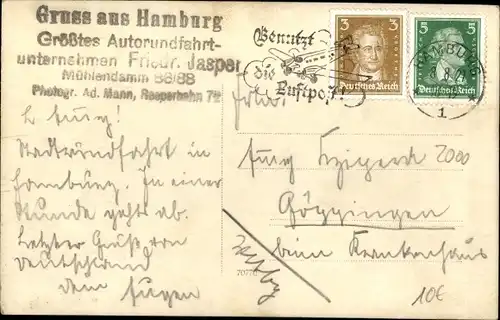 Gruss aus Hamburg
Größtes Autorundfahrt-
unternehmen Friedr. Jasper
Mühlendamm 86/88
Photogr. Ad. Mann, Reeperbahn 72
Benutzt
die
Luftpost!
3
3
Deutsches Reich
5
5
Deutsches Reich
HAMBURG
1
Stadtrundfahrt in
Hamburg. In einer
Stunde gehts ab.
Letzter Gruß von
Deutschland
dein Eugen
Frln.
Göggingen
beim Krankenhaus
10€